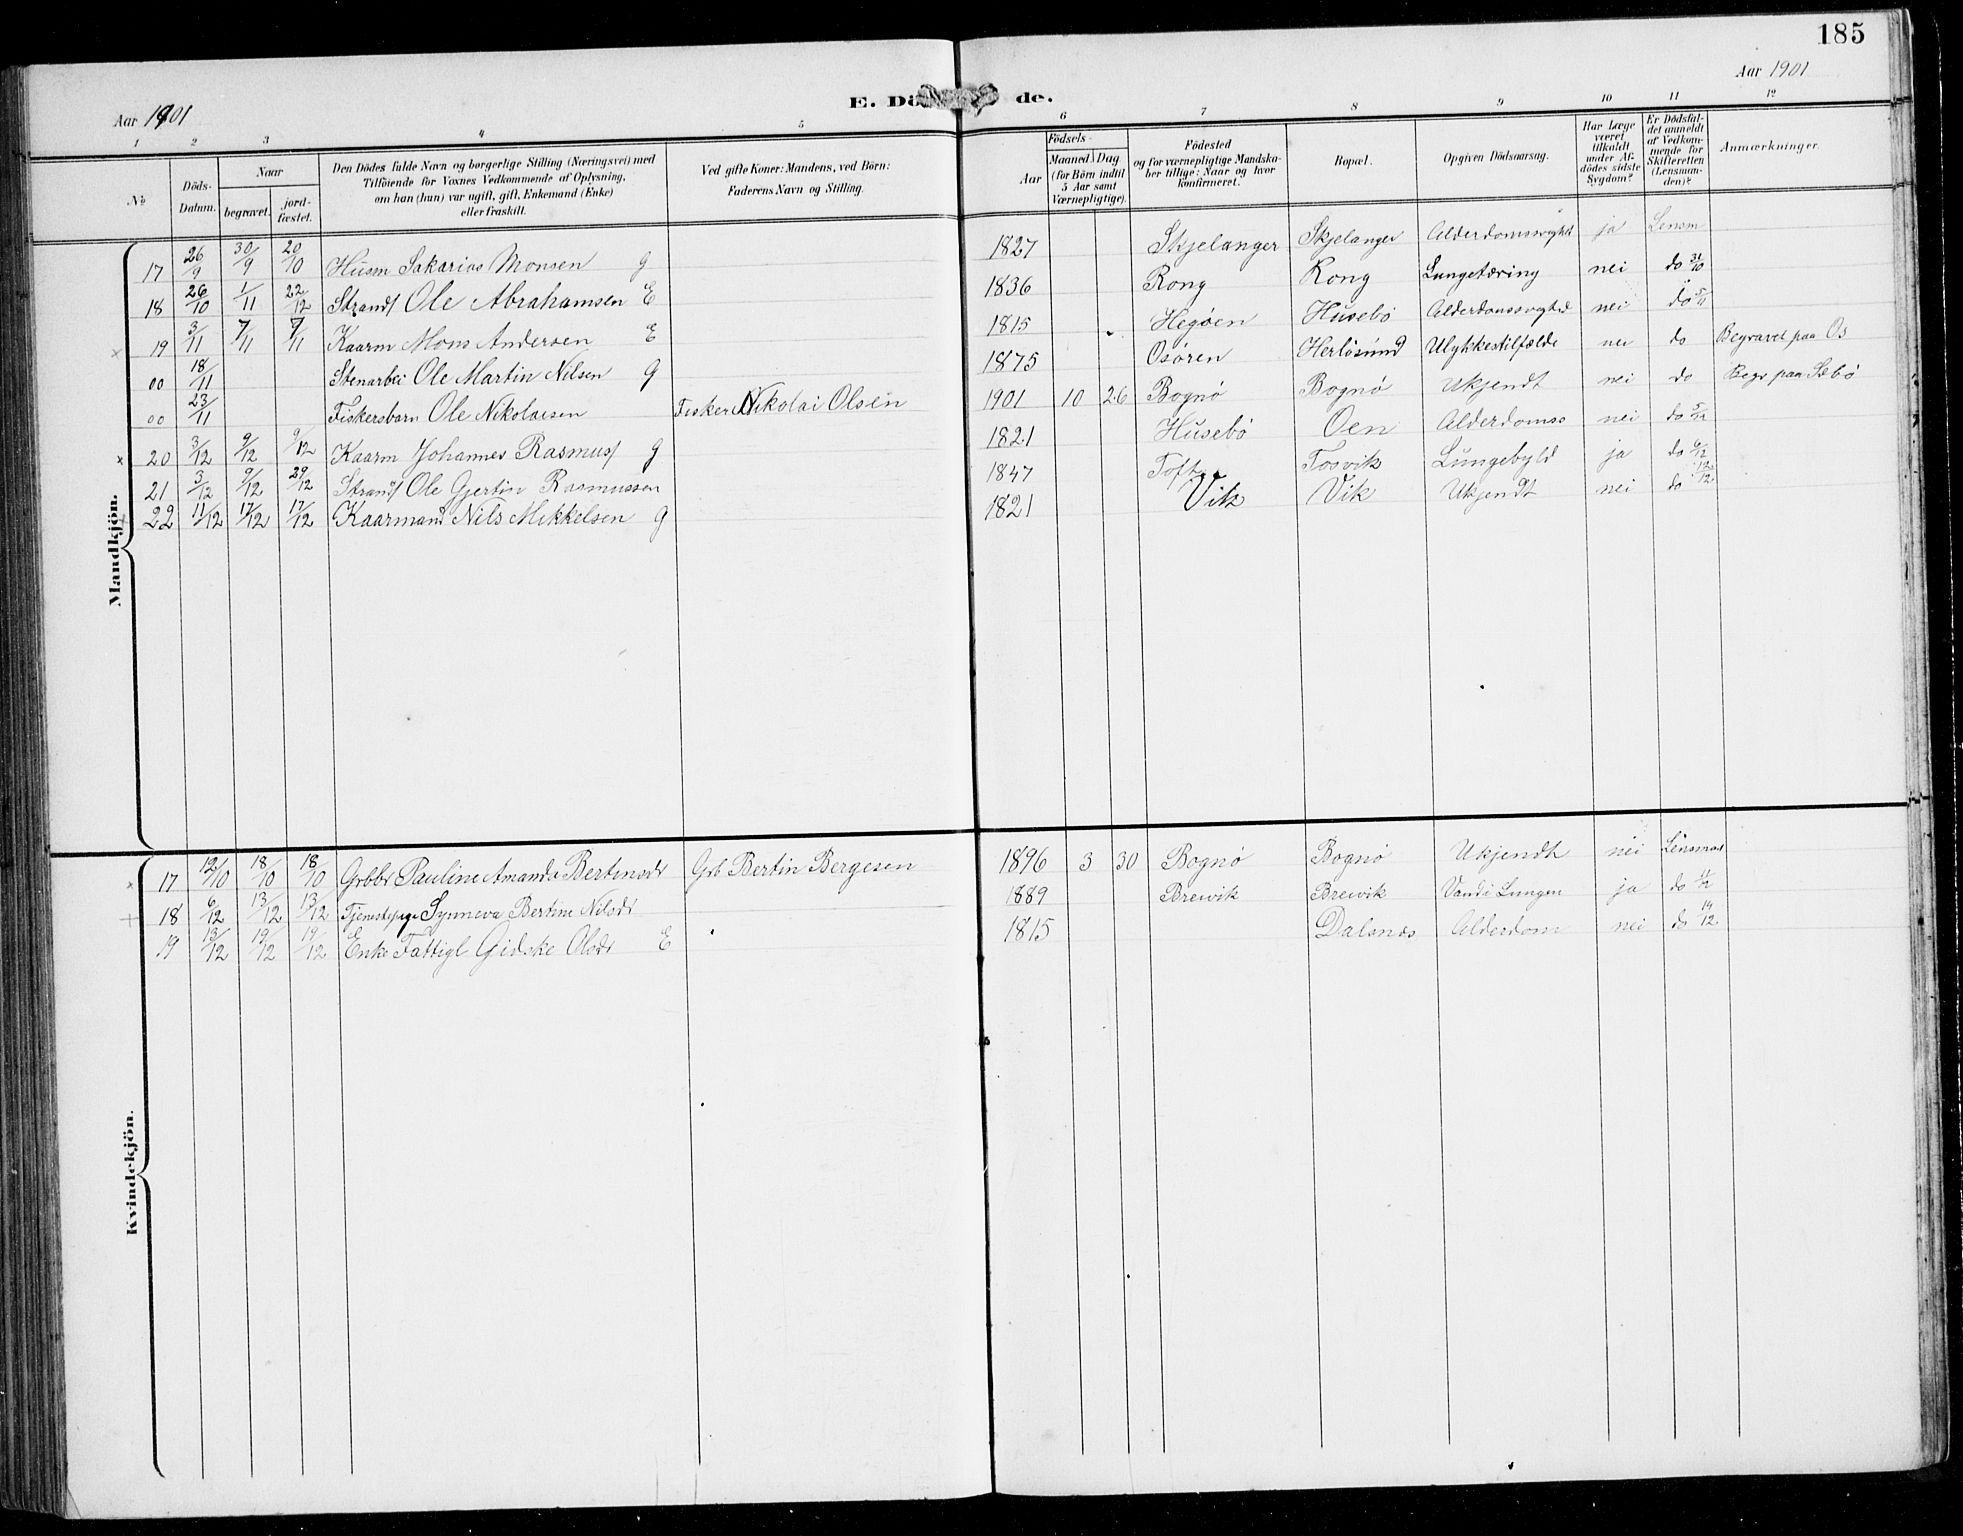 185
Aar 1901
Aar 1901
E. Dö de.
1 2 3 4 5 6 7 8 9 10 11 12
No
Döds-Datum.
Naar
begravet.
jord-fæstet.
Den Dödes fulde Navn og borgerlige Stilling (Næringsvei) med
Tilföiende for Voxnes Vedkommende af Oplysning,
om han (hun) var ugift, gift, Enkemand (Enke)
eller fraskilt.
Ved gifte Koner: Mandens, ved Börn:
Faderens Navn og Stilling.
Födsels-
Aar
Maaned Dag
(for Börn indtil
5 Aar samt
Værnepligtige).
Födested
og for værnepligtige Mandska-
ber tillige: Naar og hvor
konfirmeret.
Bopæl.
Opgiven Dödsaarsag.
Har Læge
været
tilkaldt
under Af-
dödes sidste
Sygdom?
Er Dödsfal-
det anmeldt
af Vedkom-
mende for
Skifteretten
(Lensman-
den)?
Anmærkninger.
Mandkjön.
17 26/9 30/9 20/10 Husm Sakarias Monsen G 1827 Skjelanger Skjelanger Alderdomssvaghed ja Lensm
18 26/10 1/11 22/12 Strands Ole Abrahamsen E 1836 Rong Rong Lungetæring nei do 31/10
19 3/11 7/11 7/11 Kaarm Mons Andersen E 1815 Hegöen Husebö Alderdomssvaghed nei do 5/11
00 18/11 Stenarbei Ole Martin Nilsen G 1875 Osören Herlösund Ulykkestilfælde nei do Begravet paa Os
00 23/11 Fiskersbarn Ole Nikolaisen Fisker Nikolai Olsen 1901 10 26 Bognö Bognö Ukjendt nei do Begr paa Sæbö
20 3/12 9/12 9/12 Kaarm Johannes Rasmus G 1821 Husebö Oen Alderdomss nei do 5/12
21 3/12 9/12 29/12 Strands Ole Gjertin Rasmussen 1847 Toft Tosvik Lungebyld ja do 6/12
22 11/12 17/12 17/12 Kaarmand Nils Mikkelsen G 1821 Vik Vik Ukjendt nei do 13/12
Kvindekjön.
17 12/10 18/10 18/10 Grbbr Pauline Amanda Bertinsdr Grb Bertin Bergesen 1896 3 30 Bognö Bognö Ukjendt nei Lensmad
18 6/12 13/12 13/12 Tjenestepige Synneva Bertine Nilsdr 1889 Breivik Breivik Vand i Lungen ja do 11/12
19 13/12 19/12 19/12 Enke Fattigl Gidske Olsdr E 1815 Dalsnes Alderdom nei do 14/12